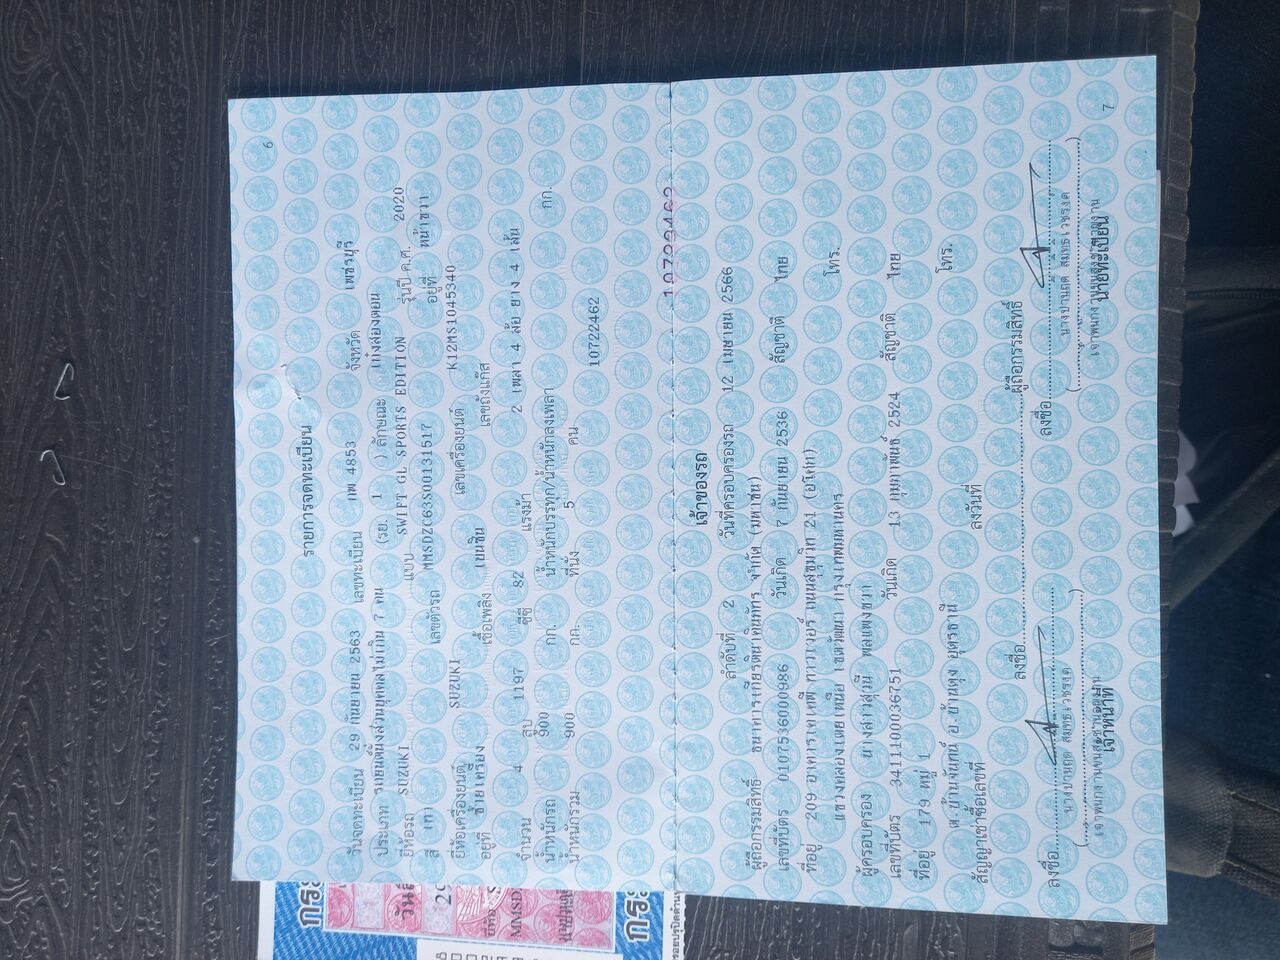 6
รายการจดทะเบียน
วันจดทะเบียน 29 กันยายน 2563 เลขทะเบียน กพ 4853 จังหวัด เพชรบุรี
ประเภท รถยนต์นั่งส่วนบุคคลไม่เกิน 7 คน (รย. 1 ) ลักษณะ เก๋งสองตอน
ยี่ห้อรถ SUZUKI แบบ SWIFT GL SPORTS EDITION รุ่นปี ค.ศ. 2020
สี เทา เลขตัวรถ MMSDZC63S00131517 อยู่ที่ หน้าขวา
ยี่ห้อเครื่องยนต์ SUZUKI เลขเครื่องยนต์ K12MS1045340
อยู่ที่ ซ้ายเครื่อง เชื้อเพลิง เบนซิน เลขถังแก๊ส
จำนวน 4 สูบ 1197 ซีซี 82 แรงม้า 2 เพลา 4 ล้อ ยาง 4 เส้น
น้ำหนักรถ 900 กก. น้ำหนักบรรทุก/น้ำหนักลงเพลา กก.
น้ำหนักรวม 900 กก. ที่นั่ง 5 คน
10722462
10722462
เจ้าของรถ
ลำดับที่ 2 วันที่ครอบครองรถ 12 เมษายน 2566
ผู้ถือกรรมสิทธิ์ ธนาคารเกียรตินาคินภัทร จำกัด (มหาชน)
เลขที่บัตร 0107536000986 วันเกิด 7 กันยายน 2536 สัญชาติ ไทย
ที่อยู่ 209 อาคารเคเคพี ทาวเวอร์ ถนนสุขุมวิท 21 (อโศก)
แขวงคลองเตยเหนือ เขตวัฒนา กรุงเทพมหานคร โทร.
ผู้ครอบครอง นางสาวสุวณี พลแพงขวา
เลขที่บัตร 3411100036751 วันเกิด 13 กุมภาพันธ์ 2524 สัญชาติ ไทย
ที่อยู่ 179 หมู่ 1
ต.บ้านจันทน์ อ.บ้านดุง อุดรธานี โทร.
สัญญาเช่าซื้อเลขที่ ลงวันที่
ลงชื่อ ผู้ถือกรรมสิทธิ์
ลงชื่อ ลงชื่อ
เจ้าหน้าที่ นายทะเบียน
7
กรม
วันสิ
29
ยี่ห้อ
MMSD
กรม